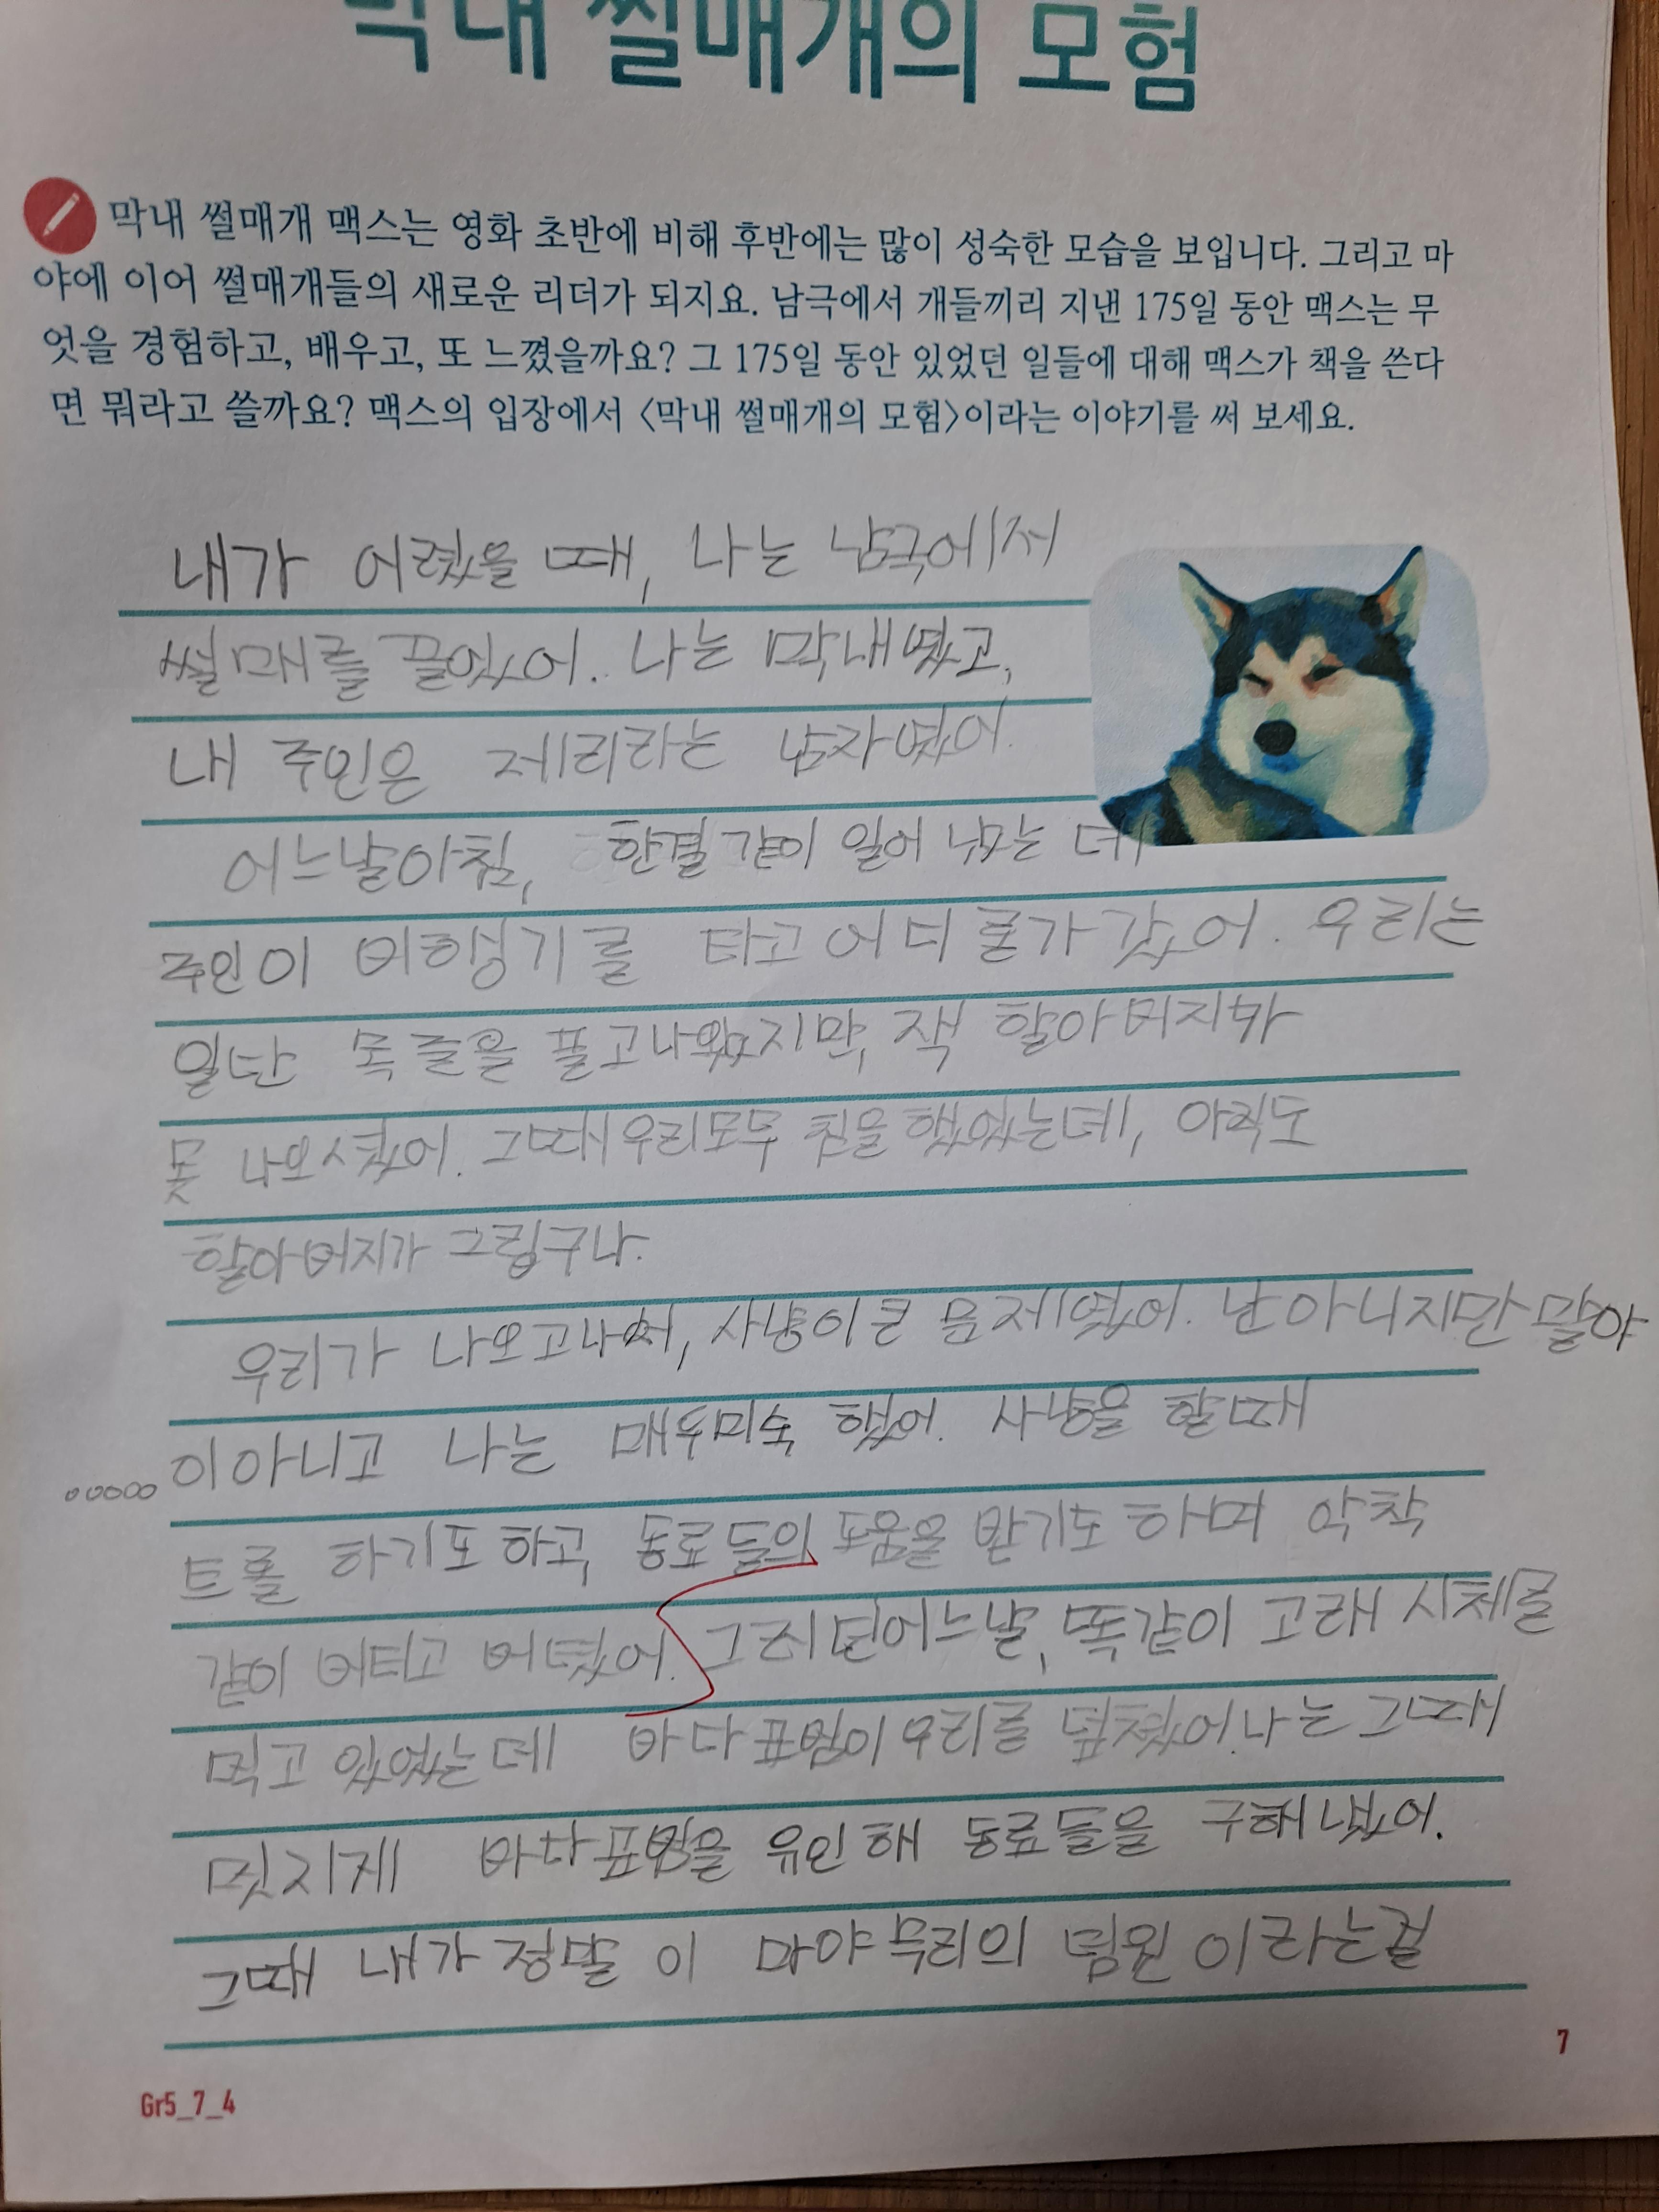 막내 썰매개의 모험
막내 썰매개 맥스는 영화 초반에 비해 후반에는 많이 성숙한 모습을 보입니다. 그리고 마
야에 이어 썰매개들의 새로운 리더가 되지요. 남극에서 개들끼리 지낸 175일 동안 맥스는 무
엇을 경험하고, 배우고, 또 느꼈을까요? 그 175일 동안 있었던 일들에 대해 맥스가 책을 쓴다
면 뭐라고 쓸까요? 맥스의 입장에서 〈막내 썰매개의 모험〉이라는 이야기를 써 보세요.
내가 어렸을 때, 나는 남극에서
썰매를 끌었어. 나는 막내였고,
내 주인은 제리라는 남자였어.
어느날아침, 한결같이 일어 났는데
주인이 비행기를 타고 어디론가 갔어. 우리는
일단 목줄을 풀고나왔지만, 잭 할아버지가
못 나오시셨어. 그때우리모두 침울했었는데, 아직도
할아버지가 그립구나.
우리가 나오고나서, 사냥이 큰 문제였어. 딴 아니지만 말야
이아니고 나는 매우미숙 했어. 사냥을 할때
크롤 하기도 하고, 동료들의 도움을 받기도 하며 악착
같이 버티고 버텼어. 그러던어느날, 똑같이 고래 시체를
먹고 있었는데 바다표범이 우리를 덮쳤어. 나는 그때
멋지게 바다표범을 유인해 동료들을 구해냈어.
그때 내가 정말 이 마야무리의 팀원 이라는걸
7
Gr5_7_4